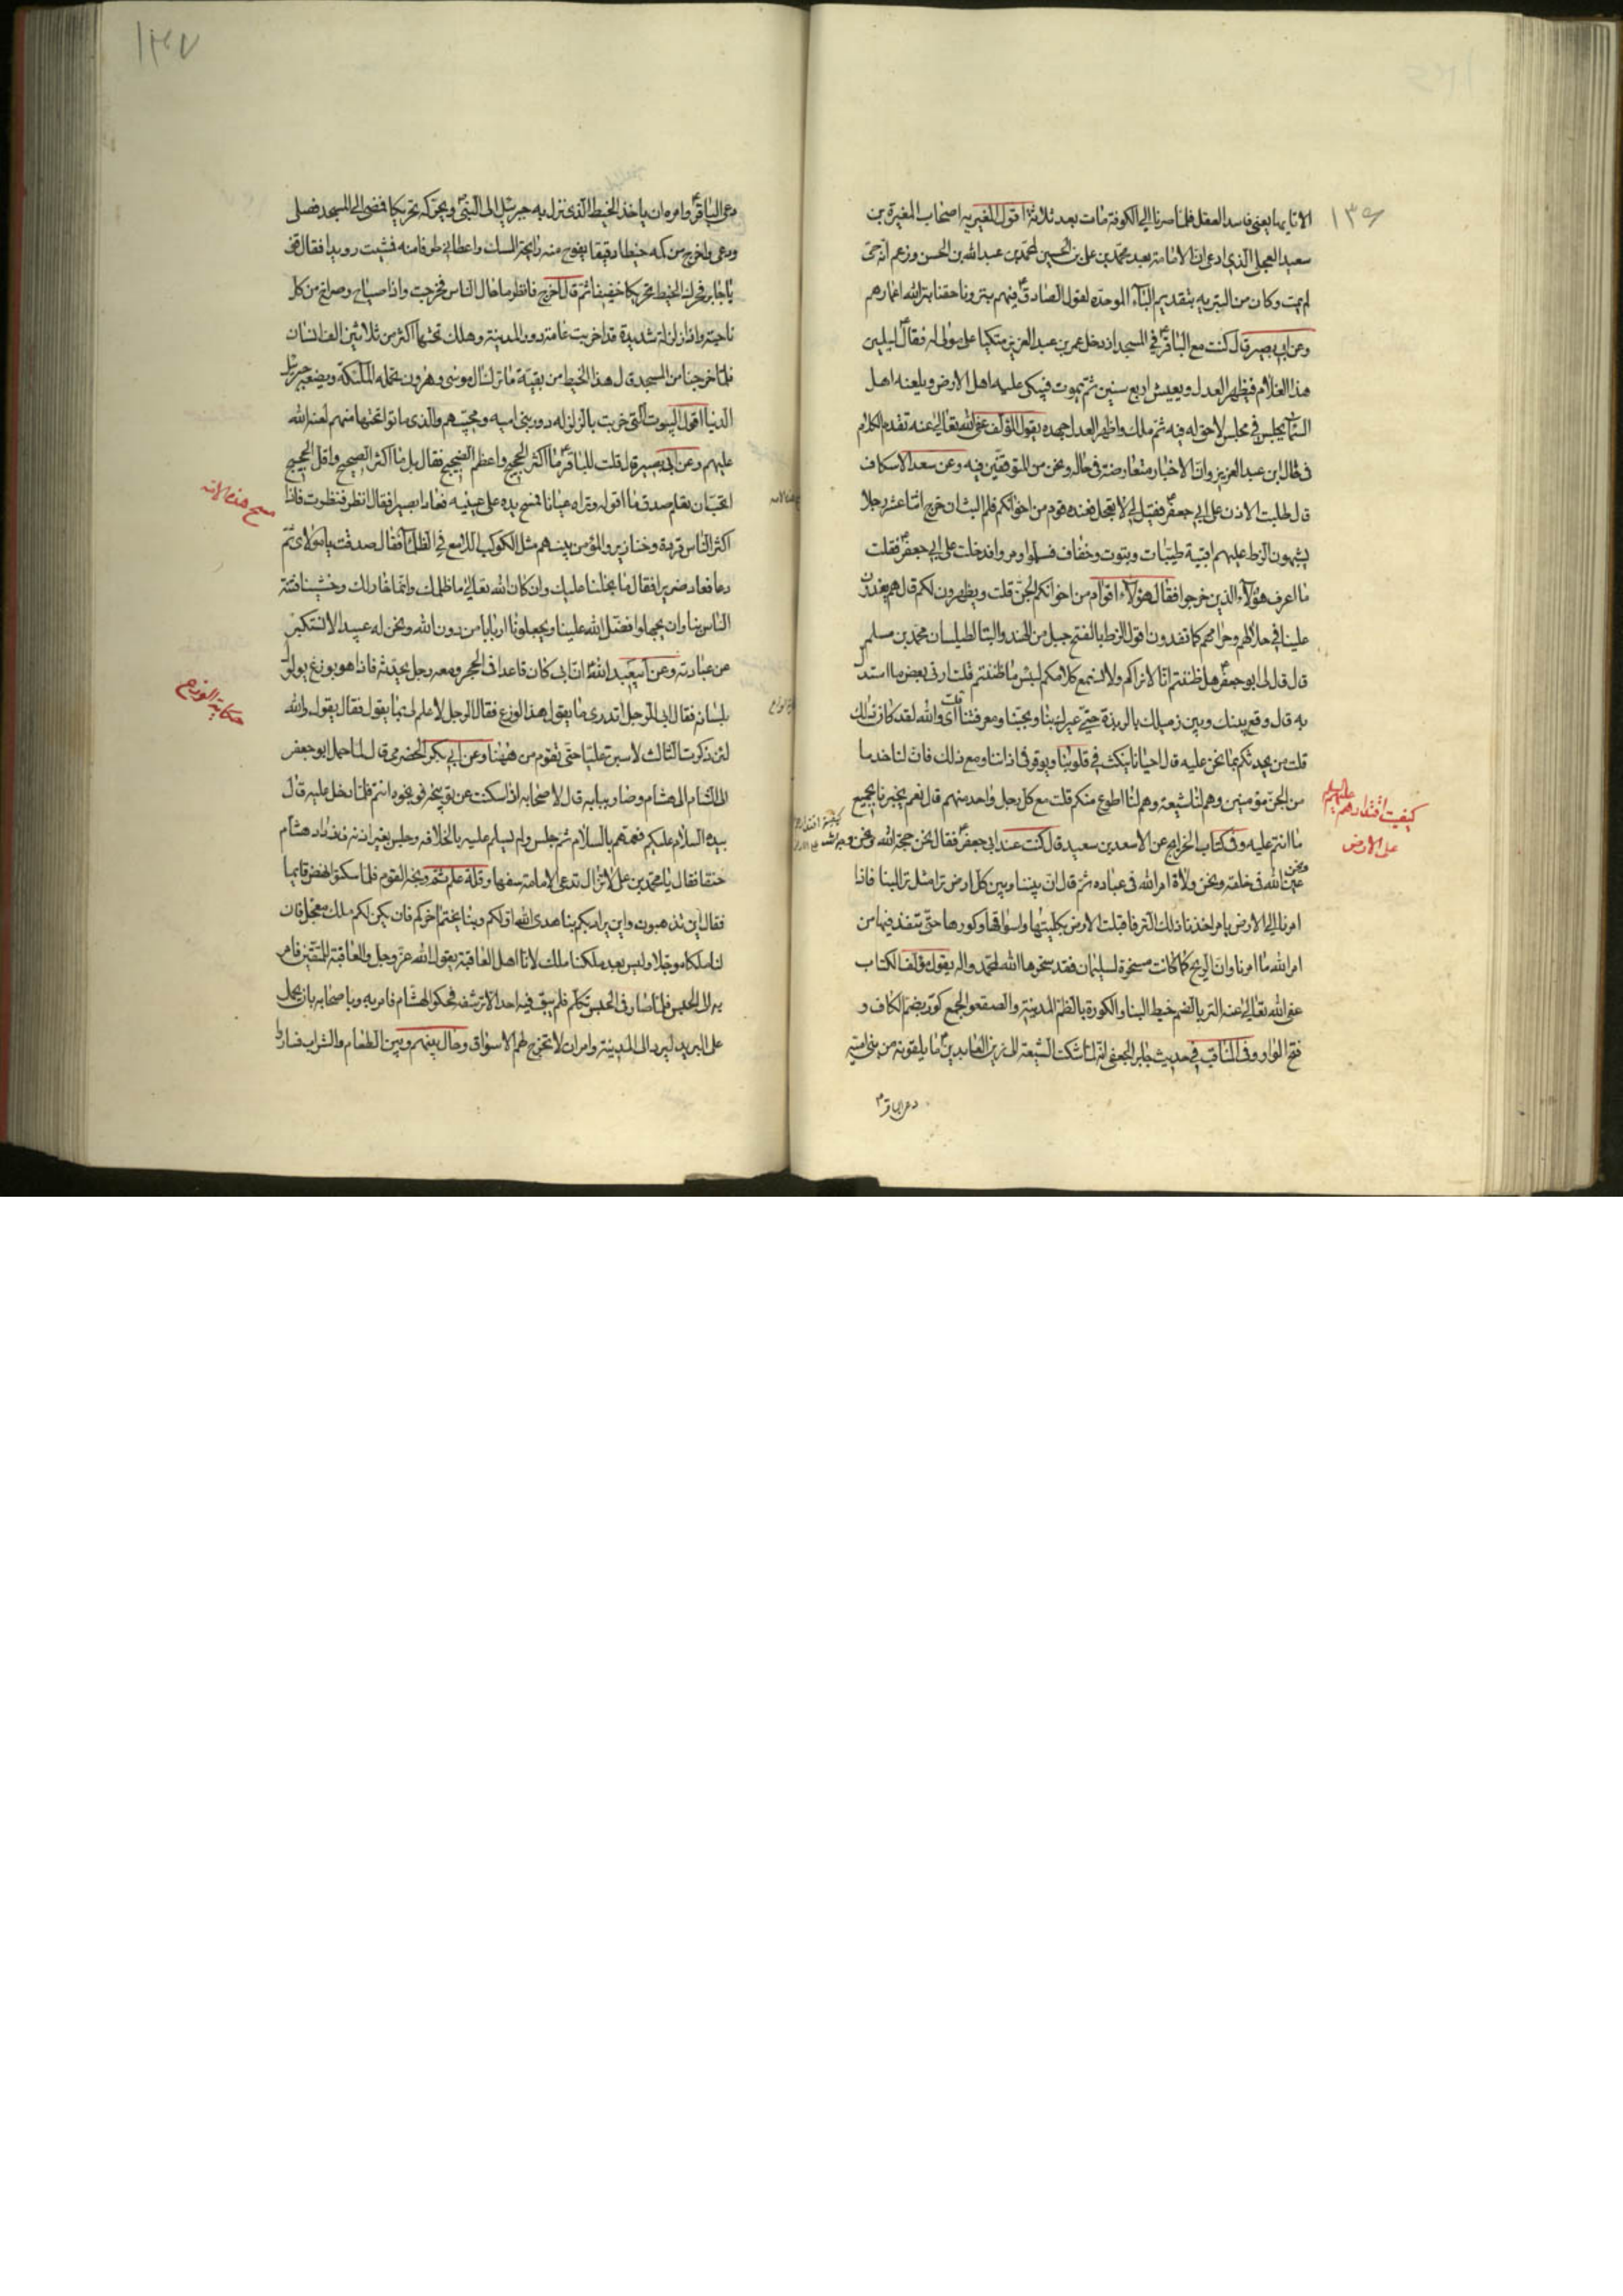 ١٣٦
الا نايما يعنى فاسد العقل فلما صرنا الى الكوفة مات بعد ثلاثة اقول المغيريه اصحاب المغيرة بن
سعيد العجلى الذى ادعى ان الامامة بعد محمد بن على بن الحسين لمحمد بن عبد الله بن الحسن وزعم انه حى
لم يمت وكان من البتريه بتقديم الباء الموحده لقول الصادق ع فيهم بترونا حقنا بتر الله اعمارهم
وعن ابى بصير قال كنت مع الباقر ع فى المسجد اذ دخل عمر بن عبد العزيز متكيا على مولى له فقال ع ليلين
هذا الغلام فيظهر العدل ويعيش اربع سنين ثم يموت فيبكى عليه اهل الارض ويلعنه اهل
السماء يجلس فى مجلس لا حق له فيه ثم ملك واظهر العدل جهده يقول المؤلف عفى الله تعالى عنه تقدم الكلام
فى حال ابن عبد العزيز وان الاخبار متعارضة فى حاله ونحن من المتوقفين فيه وعن سعد الاسكاف
قال طلبت الاذن على ابى جعفر ع فقيل لى لا تعجل فعنده قوم من اخوانكم فلم البث ان خرج اثنا عشر رجلا
يشبهون الزط عليهم اقبية طيبات وبتوت وخفاف فسلموا ومروا فدخلت على ابى جعفر ع فقلت
ما اعرف هؤلاء الذين خرجوا فقال هؤلاء اقوام من اخوانكم الجن قلت ويظهرون لكم قال هم يغدون
علينا فى حلالهم وحرامهم كما تغدون اقول الزط بالفتح جبل من الهند والبتا لطيلسان محمد بن مسلم
قال قال لى ابو جعفر ع هل ظننتم انا لا نراكم ولا نسمع كلامكم لبئس ما ظننتم قلت ارنى بعض ما استدل
به قال وقع بينك وبين زميلك بالربذة حتى عيرك بنا وبحبنا ومعرفتنا قلت اى والله لقد كان ذلك
قلت من يحدثكم بما نحن عليه قال احيانا ينكث فى قلوبنا ويوقر فى اذاننا ومع ذلك فان لنا خدما
من الجن مؤمنين وهم لنا شيعة وهم لنا اطوع منكم قلت مع كل رجل واحد منهم قال نعم يخبرنا بجميع
ما انتم عليه وفى كتاب الخرايج عن الاسعد بن سعيد قال كنت عند ابى جعفر ع فقال نحن حجة الله ونحن وجه الله
ونحن عين الله فى خلقه ونحن ولاة امر الله فى عباده ثم قال ان بيننا وبين كل ارض ترا مثل تر البنا فاذا
امرنا الى الارض بامر اخذنا ذلك التر فاقبلت الارض بكليتها واسواقها وكورها حتى تنفذ فيها من
امر الله ما امرنا وان الريح كما كانت مسخرة لسليمان فقد سخرها الله لمحمد واله يقول مؤلف الكتاب
عفى الله تعالى عنه التر بالضم خيط البنا والكورة بالظم المدينة والصقع والجمع كور بضم الكاف و
فتح الواو وفى المناقب فى حديث جابر الجعفى انه لما شكت الشيعة الى زين العابدين ع ما يلقونه من بنى امية
دعى الباقر ع
كيفيت اقتدارهم عليهم السلم
على الارض
١٣٧
دعى الباقر ع وامره ان ياخذ الخيط الذى نزل به جبرئيل الى النبى ص ويحركه تحريكا فمضى الى المسجد فصلى
ودعى واخرج من كمه خيطا دقيقا يفوح منه رايحة المسك واعطانى طرفا منه فمشيت رويدا فقال قف
يا جابر فحرك الخيط تحريكا خفيفا ثم قال اخرج فانظر ما حال الناس فخرجت واذا صياح وصراخ من كل
ناحية واذا زلزلة شديدة قد اخربت عامة دور المدينة وهلك تحتها اكثر من ثلاثين الف انسان
فلما خرجنا من المسجد قال هذا الخيط من بقية ما ترك ال موسى وهرون تحمله الملئكة ويضعه جبرئيل
الدنيا اقول البيوت التى خربت بالزلزله دور بنى اميه ومحبيهم والذى ماتوا تحتها منهم لعنة الله
عليهم وعن ابى بصير قال قلت للباقر ع ما اكثر الحجيج واعظم الضجيج فقال بل ما اكثر الضجيج واقل الحجيج
اتحب ان تعلم صدق ما اقوله وتراه عيانا فمسح يده على عينيه فعاد بصيرا فقال انظر فنظرت فاذا
اكثر الناس قردة وخنازير والمؤمن بينهم مثل الكوكب اللامع فى الظلماء فقال صدقت يا مولاى ثم
دعا فعاد ضريرا فقال ما بخلنا عليك وان كان الله تعالى ما ظلمك وانما خار لك وخشينا فتنة
الناس بنا وان يجهلوا فضل الله علينا ويجعلونا اربابا من دون الله ونحن له عبيد لا نستكبر
عن عبادته وعن ابى عبد الله ع ان ابى كان قاعدا فى الحجر ومعه رجل يحدثه فاذا هو بوزغ يولول
بلسانه فقال ابى للرجل اتدرى ما يقول هذا الوزغ فقال الرجل لا علم لى بما يقول فقال يقول والله
لئن ذكرت الثالث لاسبن عليا حتى يقوم من ههنا وعن ابى بكر الحضرمى قال لما حمل ابو جعفر
الى الشام الى هشام وصار ببابه قال لاصحابه اذا سكت عن توبيخه فوبخوه انتم فلما دخل عليه قال
بيده السلام عليكم فعمهم بالسلام ثم جلس ولم يسلم عليه بالخلافه وجلس بغير اذنه فازداد هشام
حنقا فقال يا محمد بن على لا تزال تدعى الامامة سفها وقلة علم ثم وبخه القوم فلما سكتوا نهض قايما
فقال اين تذهبون واين يراد بكم بنا هدى الله اولكم وبنا يختم اخركم فان يكن لكم ملك معجل فان
لنا ملكا موجلا وليس بعد ملكنا ملك لانا اهل العاقبة يقول الله عز وجل والعاقبة للمتقين فامر
به الى الحبس فلما صار فى الحبس تكلم فلم يبق فيه احد الا ترشفه فحكوا لهشام فامر به وباصحابه بان يحمل
على البريد ليرد الى المدينة وامر ان لا تخرج لهم الاسواق وحال بينهم وبين الطعام والشراب فساروا
مسح هذه الامة
حكاية الوزغ